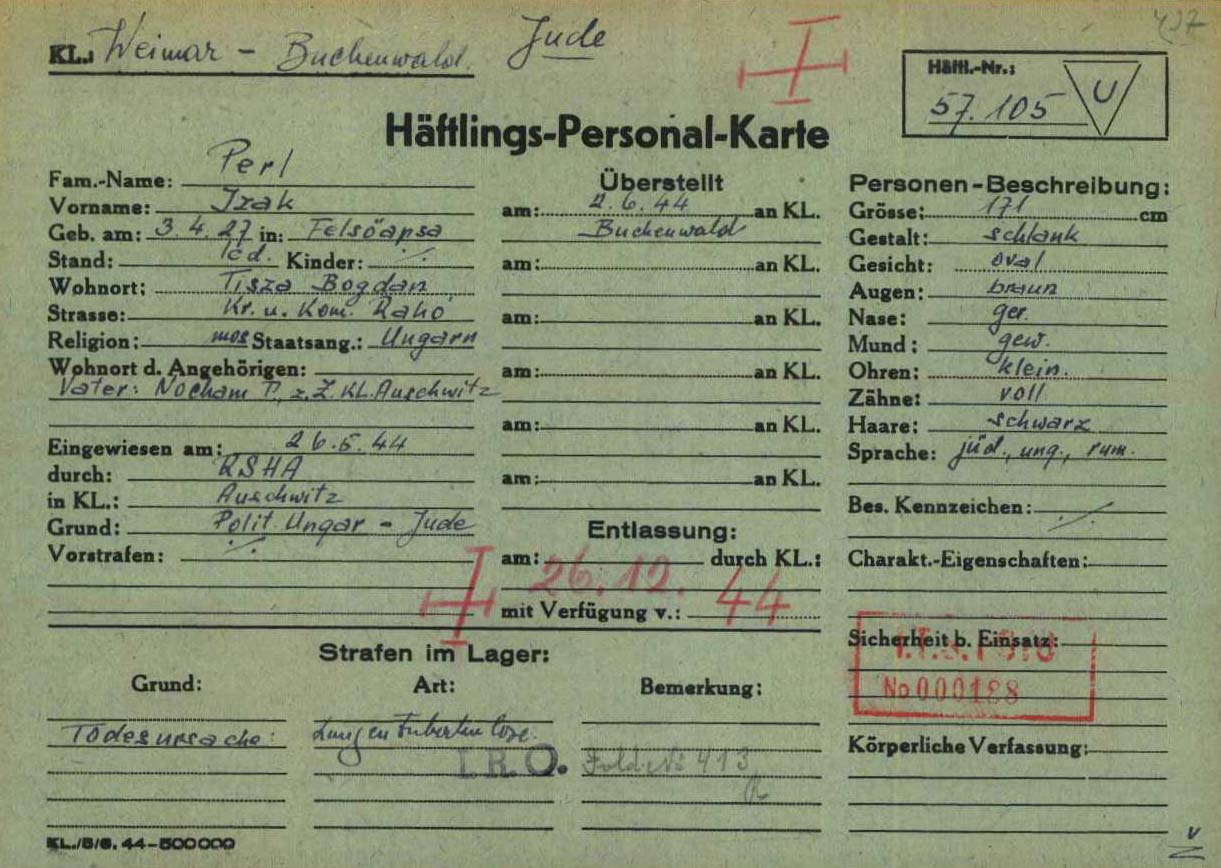 437
KL.: Weimar - Buchenwald. Jude
Häftl.-Nr.:
57.105 U
Häftlings-Personal-Karte
Fam.-Name: Perl
Vorname: Izak
Geb. am: 3.4.27 in: Felsöapsa
Stand: led. Kinder: ./.
Wohnort: Tisza Bogdan
Strasse: Kr. u. Kom. Rahó
Religion: mos Staatsang.: Ungarn
Wohnort d. Angehörigen:
Vater: Nocham P., z.Z. KL. Auschwitz
Eingewiesen am: 26.5.44
durch: RSHA
in KL.: Auschwitz
Grund: Polit. Ungar - Jude
Vorstrafen: ./.
Überstellt
am: 2.6.44 an KL.
Buchenwald
am: an KL.
am: an KL.
am: an KL.
am: an KL.
am: an KL.
Entlassung:
am: durch KL.:
26.12.44
mit Verfügung v.:
Personen-Beschreibung:
Grösse: 171 cm
Gestalt: schlank
Gesicht: oval
Augen: braun
Nase: ger.
Mund: gew.
Ohren: klein.
Zähne: voll
Haare: schwarz
Sprache: jüd., ung., rum.
Bes. Kennzeichen: ./.
Charakt.-Eigenschaften:
Sicherheit b. Einsatz:
I.T.S. FOTO
No 000188
Körperliche Verfassung:
Strafen im Lager:
Grund: Art: Bemerkung:
Todesursache: Lungentuberkulose.
I.R.O. Fold. No 413
KL./5/6. 44-500000